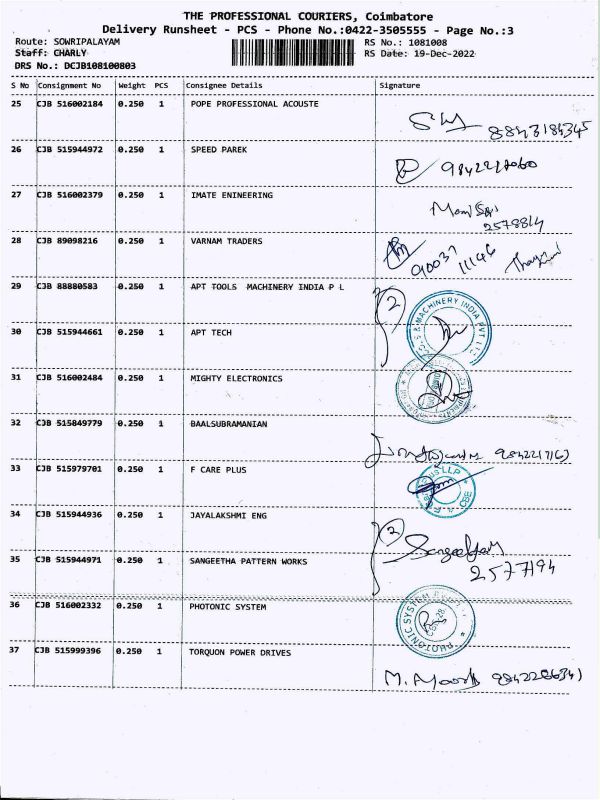 THE PROFESSIONAL COURIERS, Coimbatore
Delivery Runsheet - PCS - Phone No.:0422-3505555 - Page No.:3
Route: SOWRIPALAYAM RS No.: 1081008
Staff: CHARLY RS Date: 19-Dec-2022
DRS No.: DCJB108100803
S No Consignment No Weight PCS Consignee Details Signature
25 CJB 516002184 0.250 1 POPE PROFESSIONAL ACOUSTE
26 CJB 515944972 0.250 1 SPEED PAREK
27 CJB 516002379 0.250 1 IMATE ENINEERING
2578814
28 CJB 89098216 0.250 1 VARNAM TRADERS
90037 11146
29 CJB 88880583 0.250 1 APT TOOLS MACHINERY INDIA P L
2
MACHINERY INDIA PVT LTD
30 CJB 515944661 0.250 1 APT TECH
31 CJB 516002484 0.250 1 MIGHTY ELECTRONICS
32 CJB 515849779 0.250 1 BAALSUBRAMANIAN
33 CJB 515979701 0.250 1 F CARE PLUS
LLP
CBE
34 CJB 515944936 0.250 1 JAYALAKSHMI ENG
2
35 CJB 515944971 0.250 1 SANGEETHA PATTERN WORKS
2577194
36 CJB 516002332 0.250 1 PHOTONIC SYSTEM
PHOTONIC SYSTEM
37 CJB 515999396 0.250 1 TORQUON POWER DRIVES